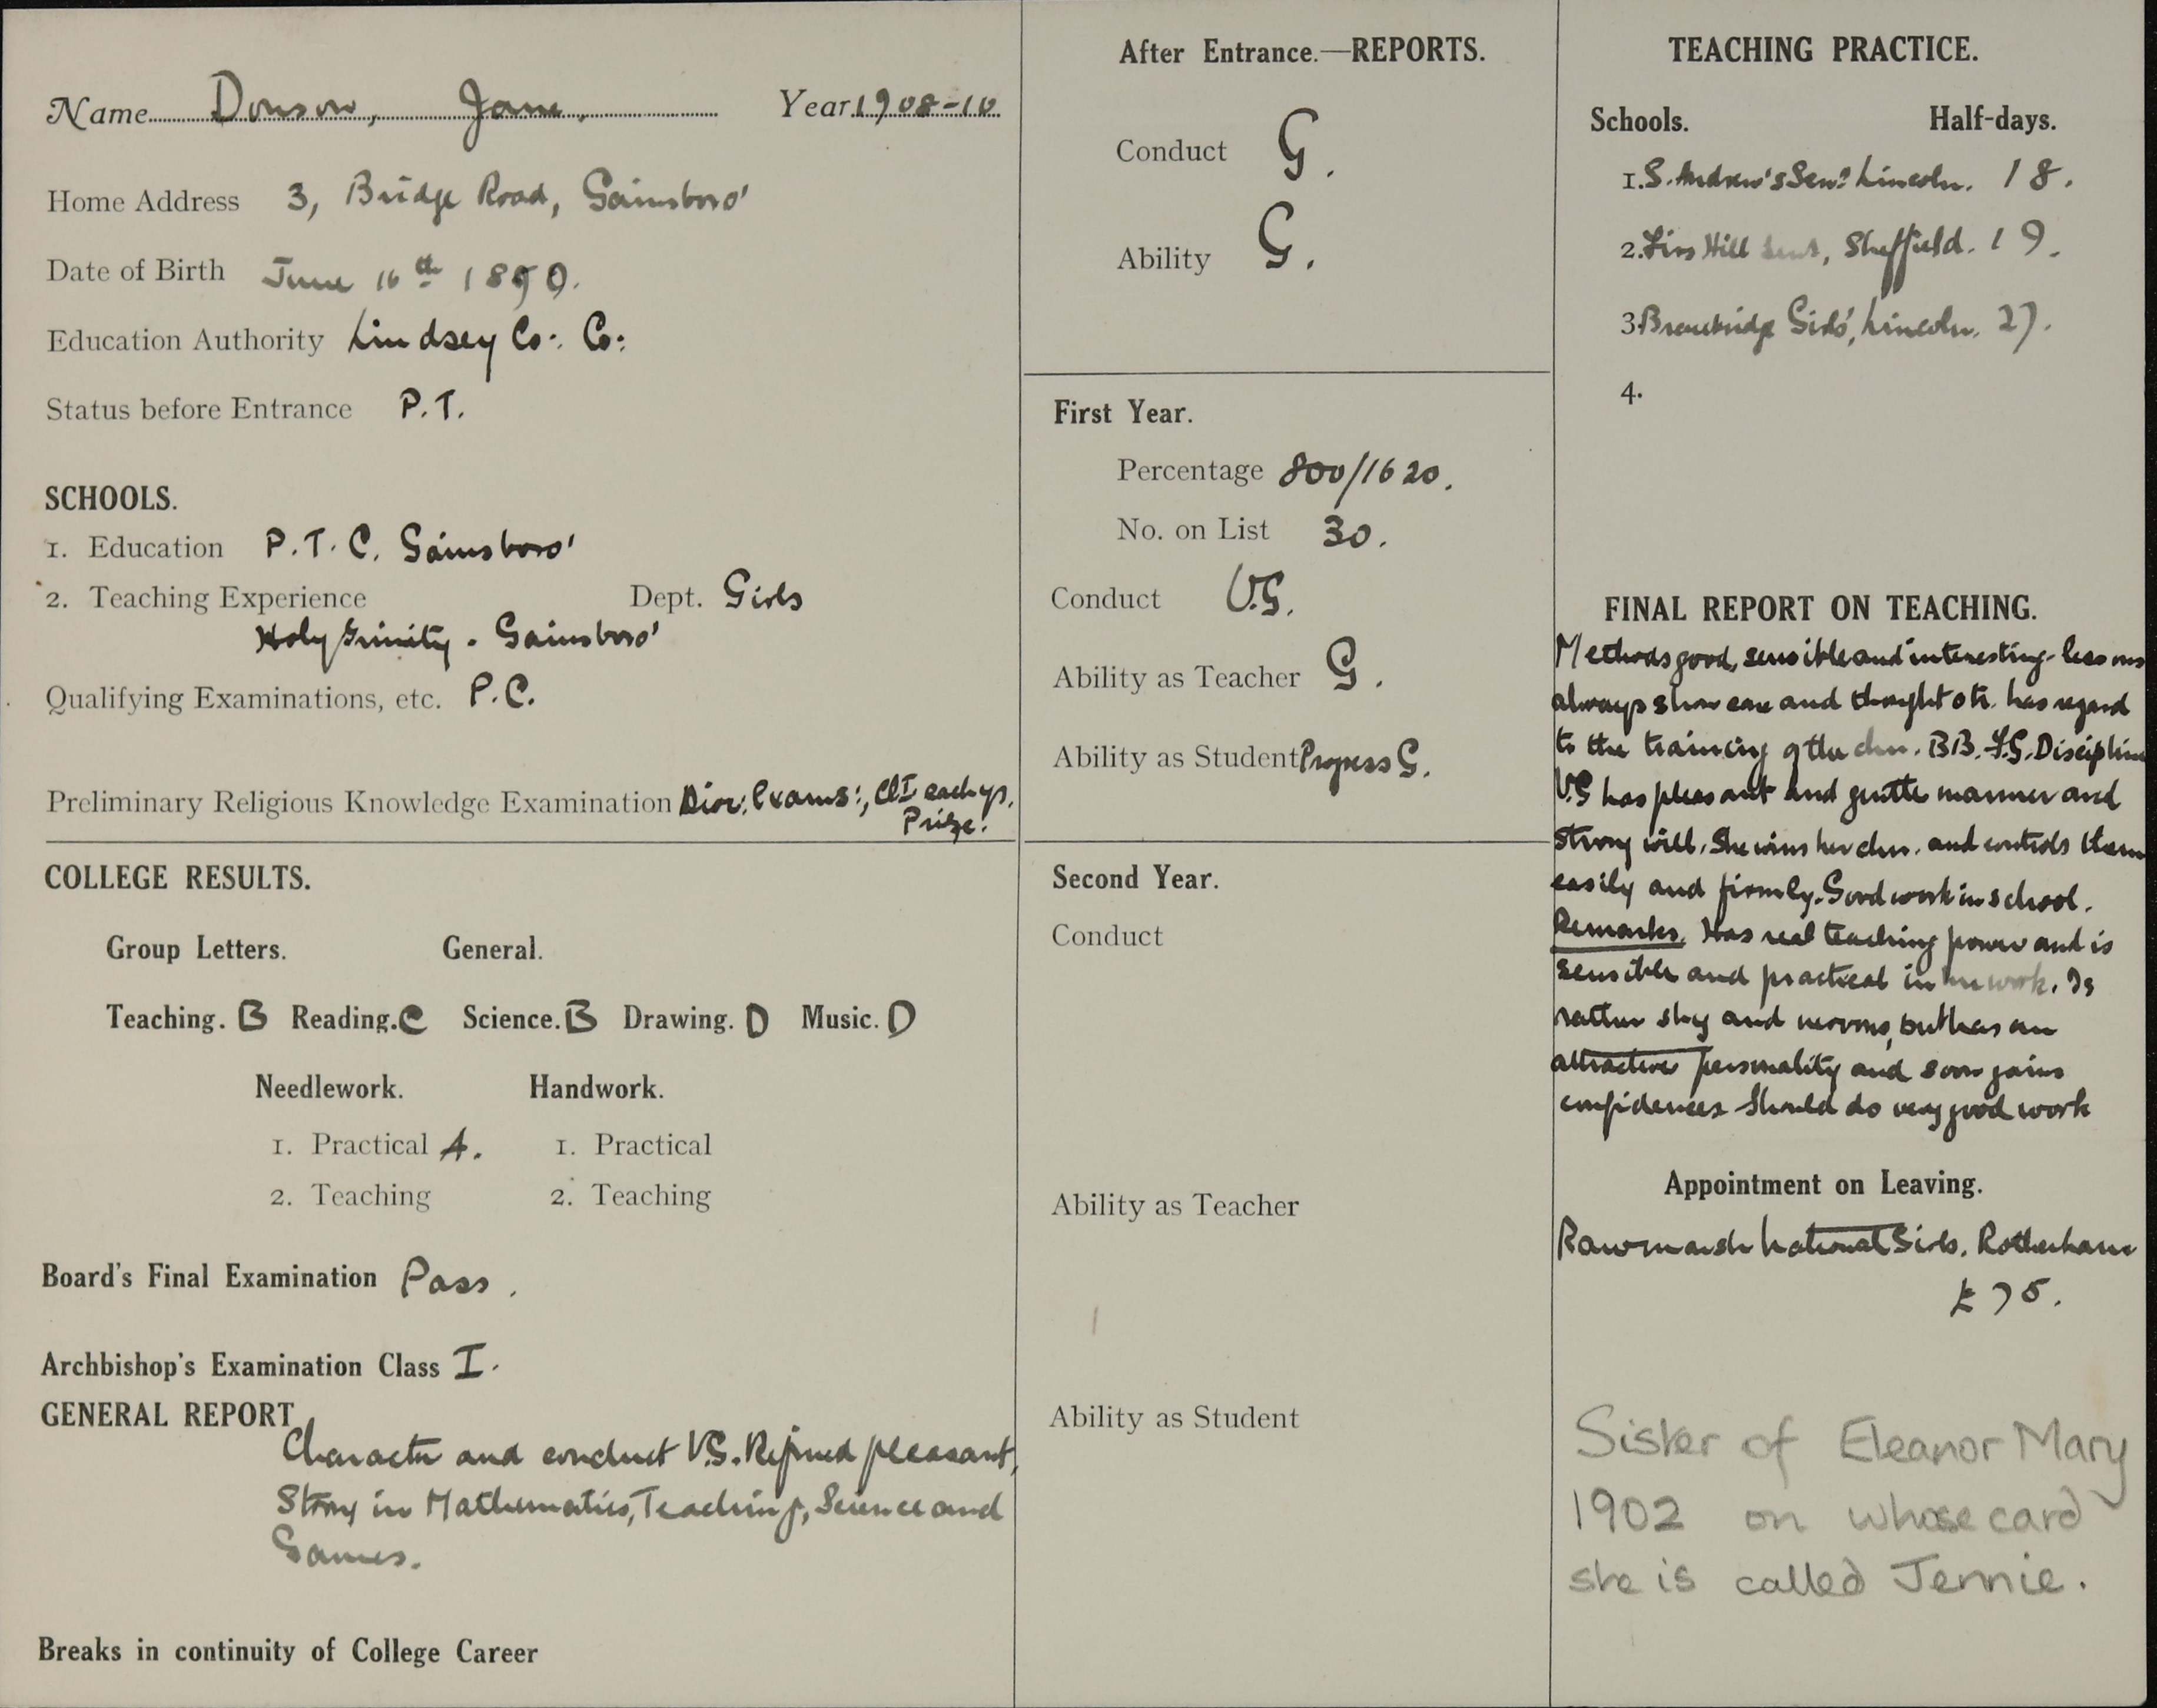 Name Dowson, Jane. Year 1908-10
Home Address 3, Bridge Road, Gainsboro'
Date of Birth June 16th 1890.
Education Authority Lindsey Co: Co:
Status before Entrance P.T.
SCHOOLS.
1. Education P.T.C. Gainsboro'
2. Teaching Experience Dept. Girls
Holy Trinity. Gainsboro'
Qualifying Examinations, etc. P.C.
Preliminary Religious Knowledge Examination Dioc: Exams:, Cl I each yr.
Prize.
COLLEGE RESULTS.
Group Letters. General.
Teaching. B Reading. C Science. B Drawing. D Music. D
Needlework. Handwork.
1. Practical A. 1. Practical
2. Teaching 2. Teaching
Board's Final Examination Pass.
Archbishop's Examination Class I.
GENERAL REPORT
Character and conduct V.G. Refined pleasant,
Strong in Mathematics, Teaching, Science and
Games.
Breaks in continuity of College Career
After Entrance.—REPORTS.
Conduct G.
Ability G.
First Year.
Percentage 800/1620.
No. on List 30.
Conduct V.G.
Ability as Teacher G.
Ability as Student Progress G.
Second Year.
Conduct
Ability as Teacher
Ability as Student
TEACHING PRACTICE.
Schools. Half-days.
1. S. Andrew's Senr Lincoln. 18.
2. Hill Sheffield. 19.
3. Bracebridge Girls', Lincoln. 27.
4.
FINAL REPORT ON TEACHING.
Methods good, sensible and interesting - lessons
always show care and thought has regard
to the training of the chn. BB. F.G. Discipline
V.G has pleasant and gentle manner and
strong will. She wins her chn. and controls them
easily and firmly. Good work in school.
Remarks. Has real teaching power and is
sensible and practical in her work. Is
rather shy and nervous, but has an
attractive personality and soon gains
confidence. Should do very good work
Appointment on Leaving.
Rawmarsh National Girls. Rotherham
£75.
Sister of Eleanor Mary
1902 on whose card
she is called Jennie.